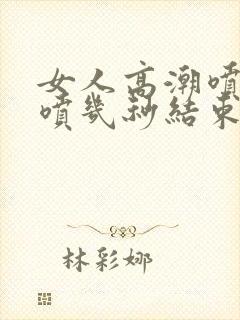 女人高潮噴
噴幾秒結束
林彩娜